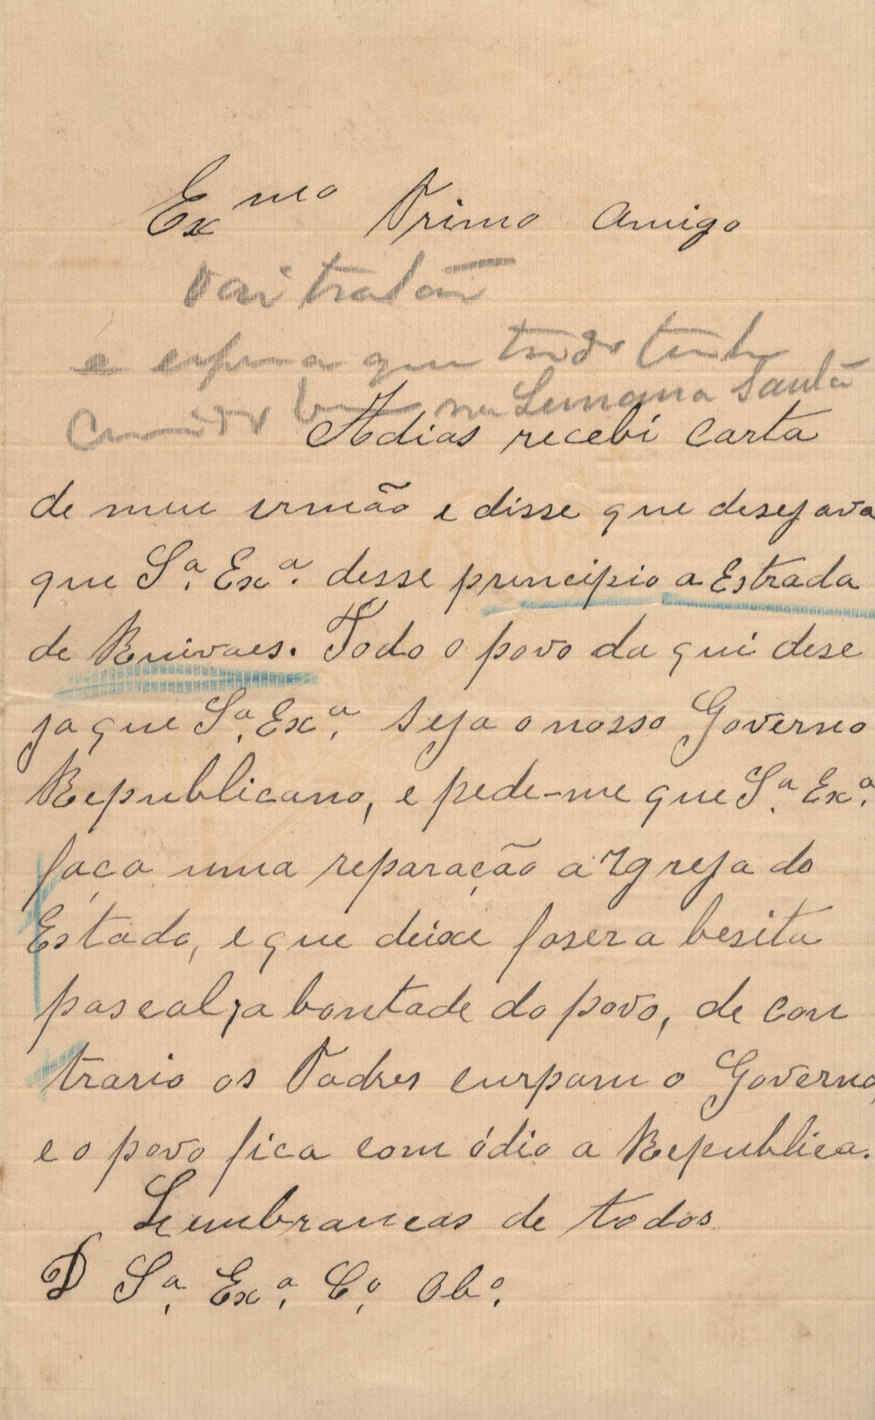 Exmo Primo Amigo
Vai tratar
e espera que tudo tenha
corrido bem na Semana Santa
Adias recebi carta
de meu irmão e disse que desejava
que Sa. Exa. desse principio a Estrada
de Ruivaes. Todo o povo da qui dese
ja que Sa. Exa. seja o nosso Governo
Republicano, e pede-me que Sa. Exa.
faça uma reparação a Igreja do
Estado, e que deixe faser a besita
pascal, a bontade do povo, de con
trario os Padres curpam o Governo,
e o povo fica com ódio a Republica.
Lembrancas de todos
D Sa. Exa. Co. Obo.